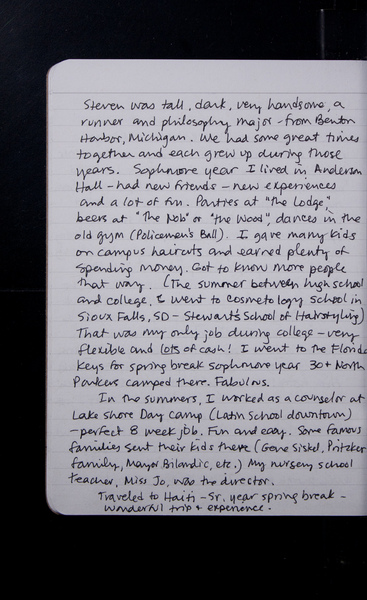 Steven was tall, dark, very handsome, a
runner and philosophy major - from Benton
Harbor, Michigan. We had some great times
together and each grew up during those
years. Sophmore year I lived in Anderson
Hall - had new friends - new experiences
and a lot of fun. Parties at "the Lodge,"
beers at "The Nob" or "the Wood", dances in the
old gym (Policemen's Ball). I gave many kids
on campus haircuts and earned plenty of
spending money. Got to know more people
that way. (The summer between high school
and college, I went to cosmetology school in
Sioux Falls, SD - Stewart's School of Hairstyling)
That was my only job during college - very
flexible and lots of cash! I went to the Florida
Keys for spring break sophmore year 30+ North
Parkers camped there. Fabulous.
In the summers, I worked as a counselor at
Lake Shore Day Camp (Latin School downtown)
- perfect 8 week job. Fun and easy. Some famous
families sent their kids there (Gene Siskel, Pritzker
family, Mayor Bilandic, etc.) My nursery school
teacher, Miss Jo, was the director.
Traveled to Haiti - Sr. year spring break -
wonderful trip + experience.